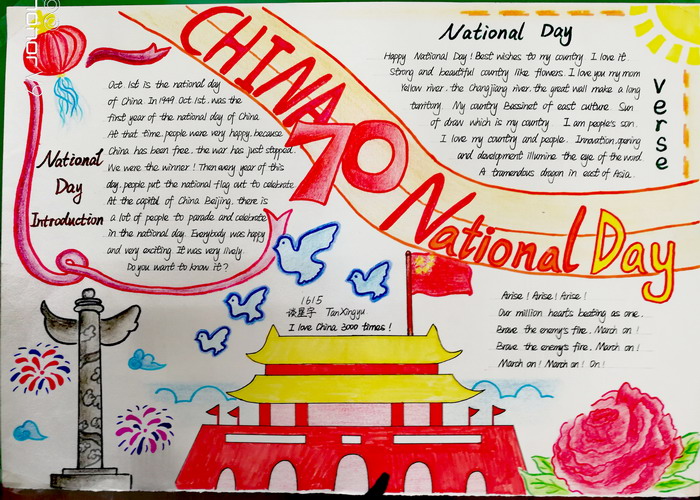 CHINA
70
National Day
National
Day
Introduction
Oct. 1st is the national day
of China. In 1949. Oct. 1st. was the
first year of the national day of China.
At that time, people were very happy, because
China has been free, the war has just stopped.
We were the winner! Then every year of this
day, people put the national flag out to celebrate.
At the capital of China Beijing, there is
a lot of people to parade and celebrate
in the national day. Everybody was happy
and very exciting. It was very lively.
Do you want to know it?
National Day
Happy National Day! Best wishes to my country. I love it
Strong and beautiful country like flowers. I love you my mom
Yellow river. the Changjiang river. the great wall make a long
territory. My country Bassinet of east culture. Sun
of draw which is my country. I am people's son.
I love my country and people. Innovation, opening
and development illumine the eye of the word.
A tremendous dragon in east of Asia.
verse
1615
谈星宇 TanXingyu
I love China 3000 times!
Arise! Arise! Arise!
Our million hearts beating as one.
Brave the enemy's fire. March on!
Brave the enemy's fire. March on!
March on! March on! On!